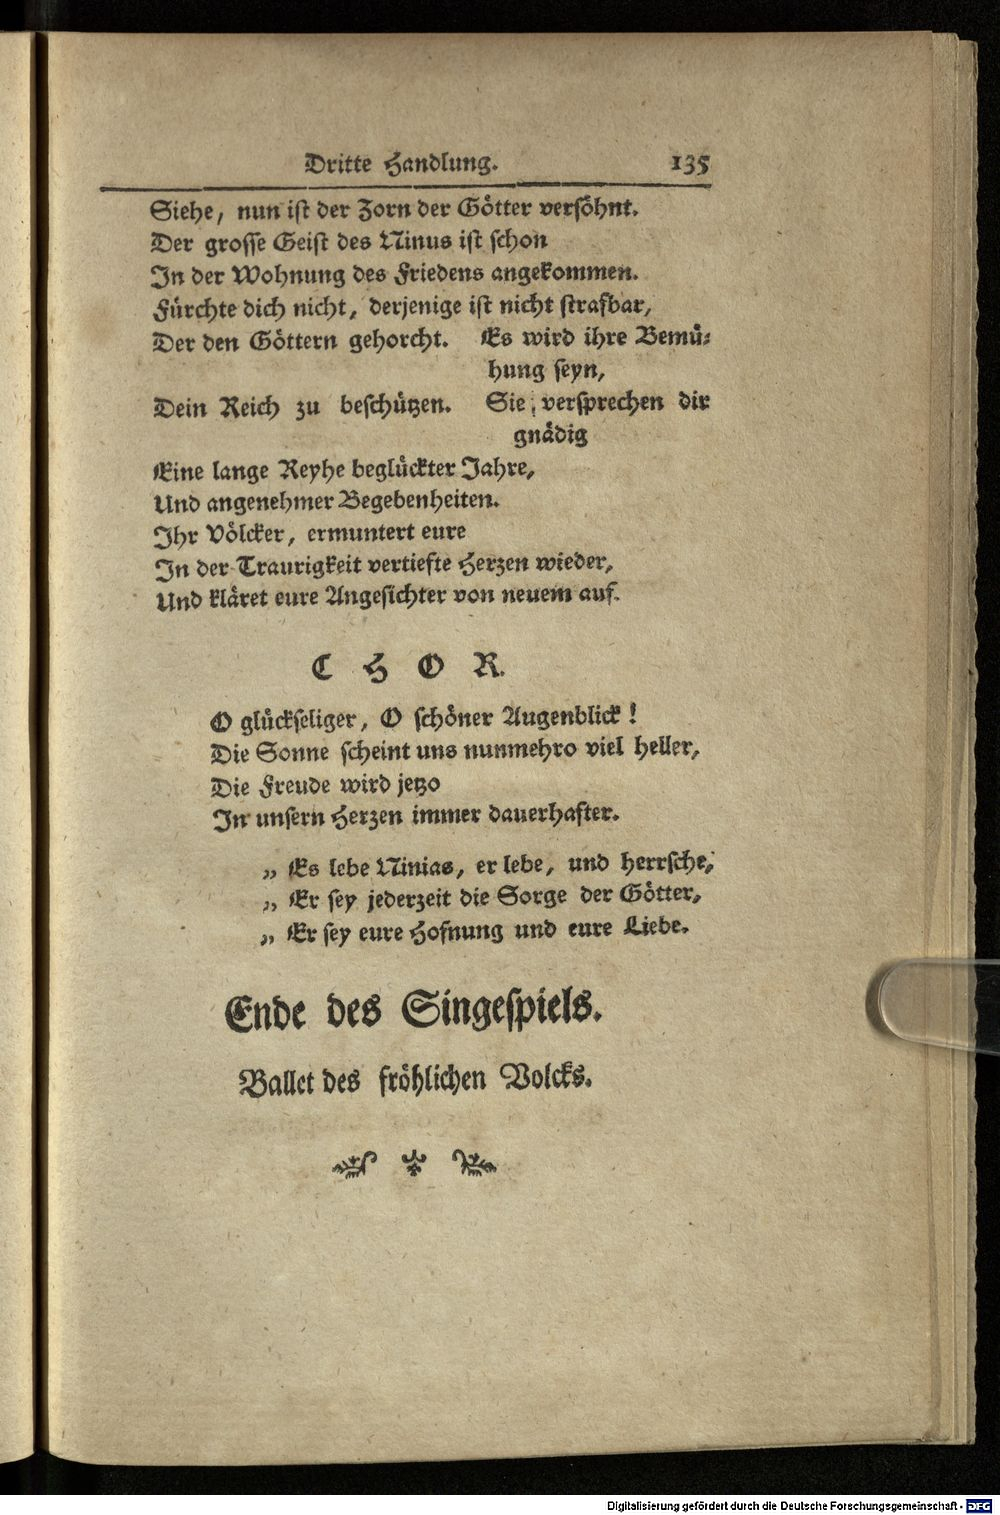 Dritte Handlung. 135
Siehe, nun ist der Zorn der Götter versöhnt.
Der grosse Geist des Ninus ist schon
In der Wohnung des Friedens angekommen.
Fürchte dich nicht, derjenige ist nicht strafbar,
Der den Göttern gehorcht. Es wird ihre Bemü-
hung seyn,
Dein Reich zu beschützen. Sie versprechen dir
gnädig
Eine lange Reyhe beglückter Jahre,
Und angenehmer Begebenheiten.
Ihr Völcker, ermuntert eure
In der Traurigkeit vertiefte Herzen wieder,
Und kläret eure Angesichter von neuem auf.
CHOR.
O glückseliger, O schöner Augenblick!
Die Sonne scheint uns nunmehro viel heller,
Die Freude wird jetzo
In unsern Herzen immer dauerhafter.
„ Es lebe Ninias, er lebe, und herrsche,
„ Er sey jederzeit die Sorge der Götter,
„ Er sey eure Hofnung und eure Liebe.
Ende des Singespiels.
Ballet des fröhlichen Volcks.
Digitalisierung gefördert durch die Deutsche Forschungsgemeinschaft - DFG